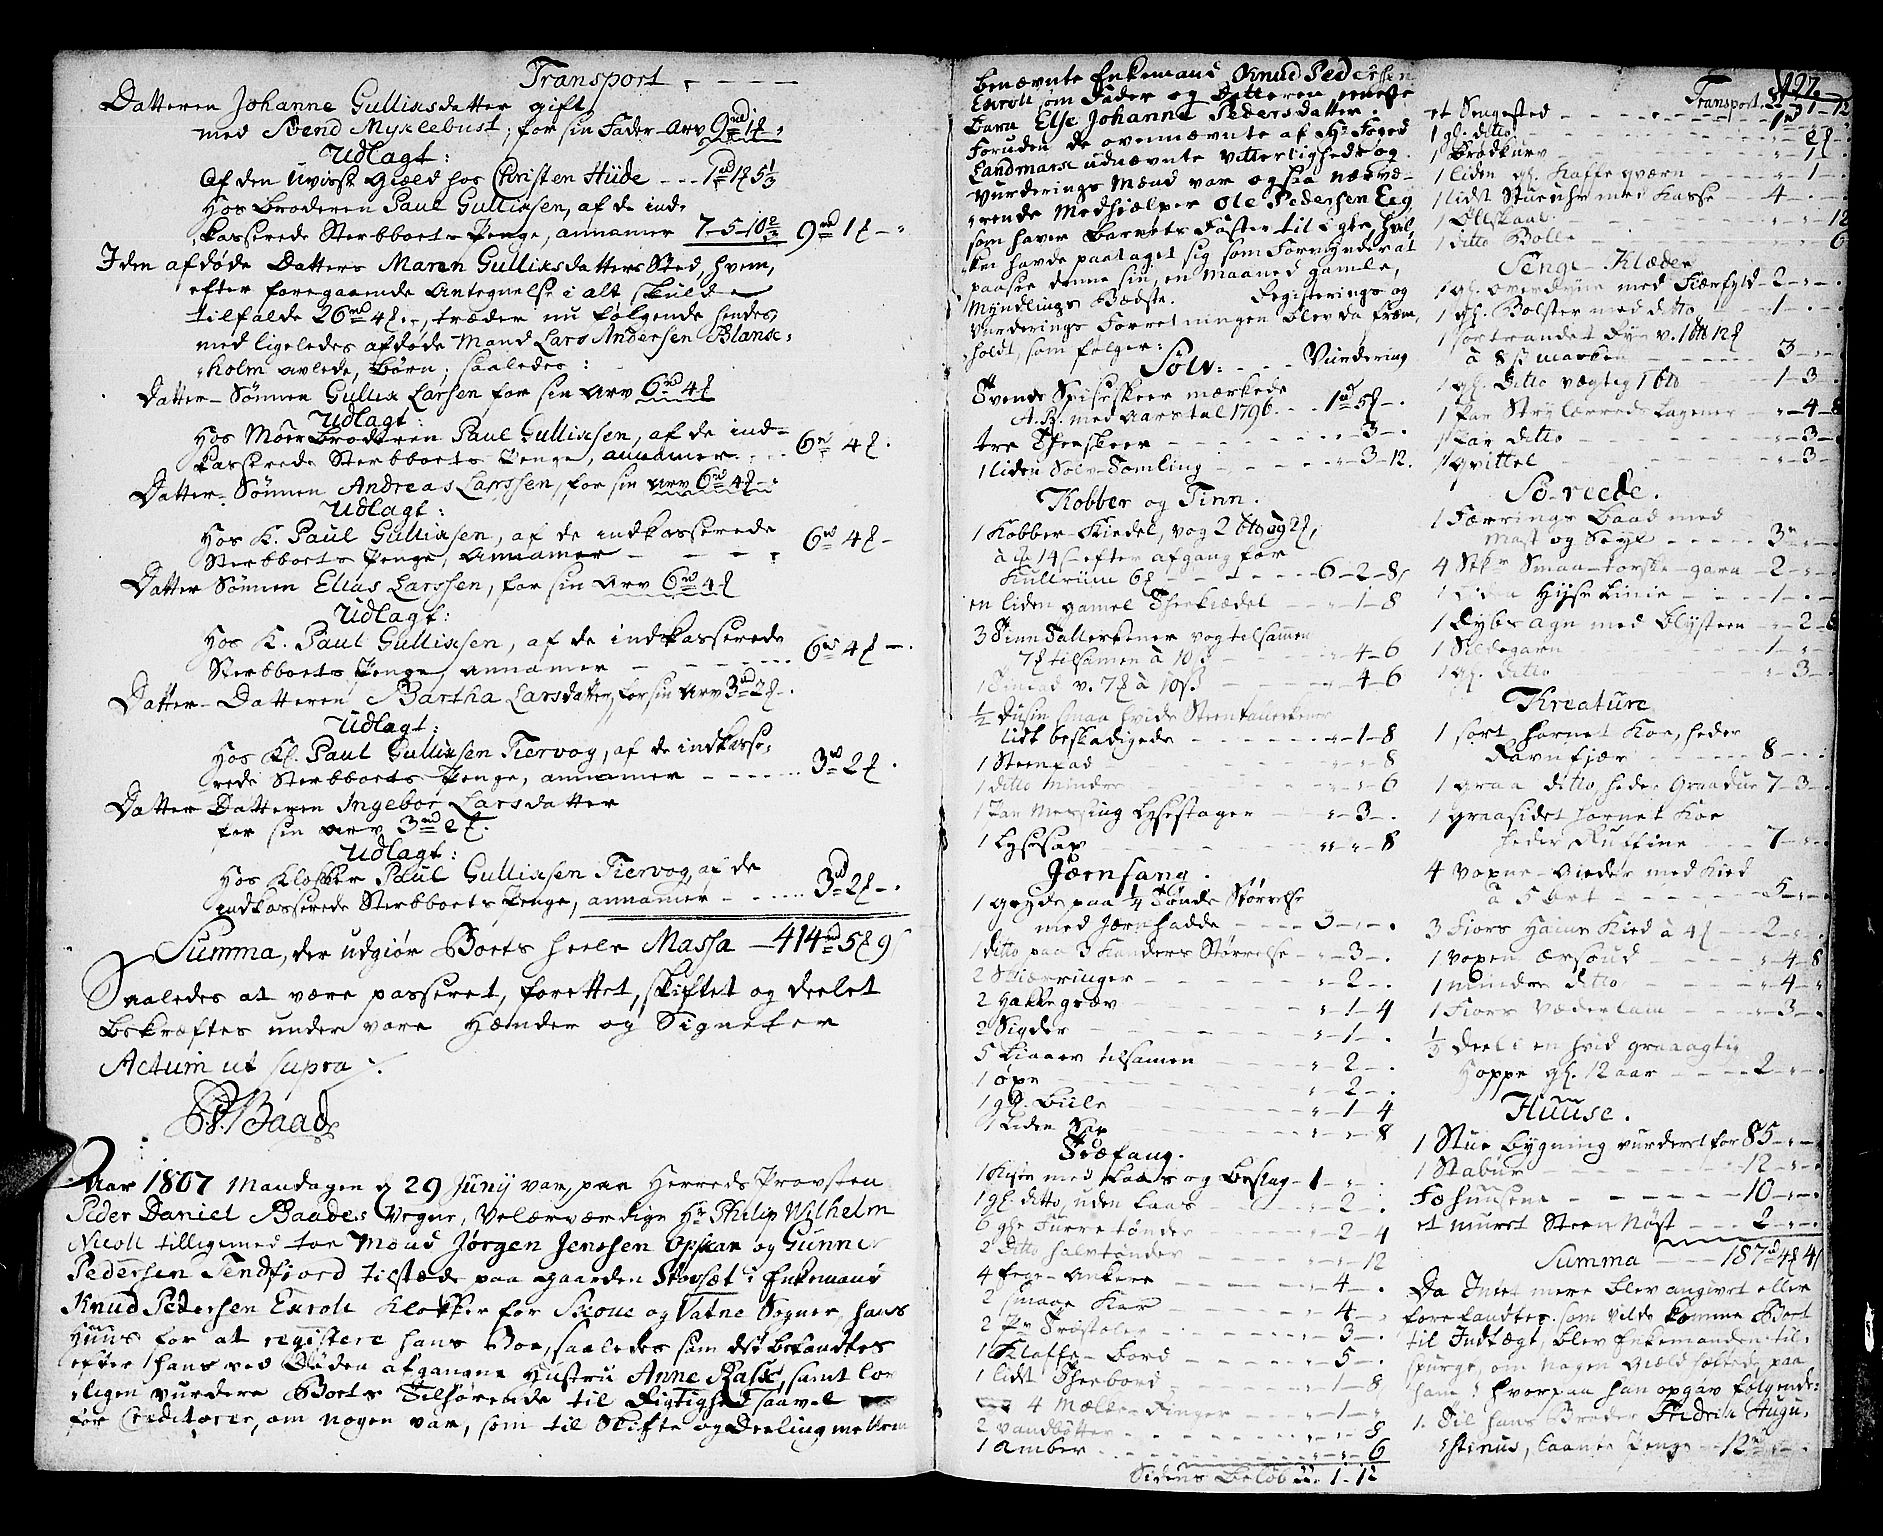 Transport
Datteren Johanne Gullixsdatter gift
med Svend Myklebust, for sin Fader-Arv 9rd 1ȝ
Udlagt:
Af den uvisse Giæld hos Christen Hiide - - - 1rd 1ȝ 5 1/3
Hos Broderen Paul Gullixsen, af de ind-
kasserede Sterbboets Penge, annamer 7-5-10 2/3 9rd 1ȝ -
I den afdøde Datters Maren Gullixsdatters Sted, hvem,
efter foregaaende Antegnelse i alt skulde
tilfalde 26rd 4ȝ -, træder nu følgende hendes
med ligeledes afdøde Mand Lars Andersen Blanke-
holm avlede, Børn, saaledes:
Datter-Sønnen Gullik Larsen for sin Arv 6rd 4ȝ
Udlagt:
Hos Moerbroderen Paul Gullixsen, af de ind-
kasserede Sterbboets Penge, annamer - - - 6rd 4ȝ.
Datter-Sønnen Andreas Larssen, for sin Arv 6rd 4ȝ -
Udlagt:
Hos K. Paul Gullixsen, af de indkasserede
Sterbboets Penge, Annamer - - - 6rd 4ȝ -
Datter Sønnen Elias Larssen, for sin Arv 6rd 4ȝ
Udlagt:
Hos K. Paul Gullixsen, af de indkasserede
Sterbboets Penge, annamer - - - 6rd 4ȝ -
Datter-Datteren Bartha Larsdatter, for sin Arv 3rd 2ȝ -
Udlagt:
Hos Kl. Paul Gullixsen Fiervog, af de indkasse-
rede Sterbboets Penge, annamer - - - 3rd 2ȝ.
Datter Datteren Ingebor Larsdatter
for sin Arv 3rd 2ȝ.
Udlagt:
Hos Klokker Paul Gullixsen Fiervog, af de
indkasserede Sterbboets Penge, annamer - - - 3rd 2ȝ -
Summa, der udgiør Boets heele Massa - 414rd 5ȝ 9
Saaledes at være passeret, forettet, skiftet og deelet
bekræftes under vore Hænder og Signeter
Actum ut supra
PD. Baade
Aar 1807 Mandagen d 29 Junij var, paa Herreds Provsten
Peder Daniel Baades Vegne, Velærværdige Hr Philip Wilhelm
Nicoll tilligemed toe Mænd Jørgen Jenssen Opskar og Gunner
Pedersen Tendfiord tilstæde paa Gaarden Støvset i Enkemand
Knud Pedersen Exroll Klokker for Skoue og Vatne Sogner, hans
Huus for at registere hans Boe, saaledes som det befandtes
efter hans ved Døden afgangne Hustru Anne Rasse, samt lov-
ligen vurdere Boets Tilhørende til Rigtighed saavel
for Creditorer, om nogen var, som til Skifte og Deeling mellem
benævnte Enkemand Knud Pedersen
Exroll som Fader og Datteren eeneste
Barn Else Johanna Pedersdatter.
Foruden de ovennævnte af Hr Foged
Landmark udnævnte Vitterligheds og
Vurderings Mænd var ogsaa nærvæ-
rende Medhielper Ole Pedersen Eeg
som haver Barnets Faster til Egte, hvil-
ken havde paataget sig som Formynder at
paasee denne sin, en Maaned gamle,
Myndlings Bædste. Registerings og
Vurderings Forretningen blev da frem-
holdt, som følger:
Sølv: - - - Vurdering
Svends Spiseskeer mærkede
A.B. med Aarstal 1796 - - 1rd 5ȝ -.
tre Theeskeer - - - 3 -
1 liden Sølv-Samling - - - 3-12.
Kobber og Tinn.
1 Kobber-Kiedel, vog 2 btl og 2ȝ,
à 14ȝ efter afgang for
Kullrium 6ȝ - - - 6-2-8
en liden gamel Theekiedel - - 1-8
3 Tinn Tallerkener vog tilsammen
7ȝ tilsamen à 10ß - - 4-6
1 Tinfad v. 7ȝ à 10ß - - 4-6
1/2 Dusin smaa hvide Steentallerkener
lidt beskadigede - - - 1-8
1 Steenfad - - - 8
1 ditto mindre - - - 6
1 Par Messing Lysestager - - 3 -
1 Lysesax - - - 8
Jærnfang.
1 Gryde paa 1/4 Tønde Størrelse
med Jærnhadde - - - 3 - -
1 ditto paa 3 Kanders Størrelse - 3 -
2 Skiærringer - - - 2 -
2 Hakkegrev - - - 1-4
2 Sigder - - - 1 -
5 Liaaer tilsamen - - - 2 -
1 Øxe - - - 2 -
1 gl. Biile - - - 1-4
1 Liden Sax - - - 8
Træfang.
1 Kiste med Laas og Beslag - 1 - -
1 gl. ditto, uden Laas - - - 2 -
6 gle Turretønder - - - 2-4
2 Ditto halvtønder - - - 12
4 Fire-Ankere - - - 4 -
2 smaae Kar - - - 4 -
2 Pr Træstoler - - - 3 -
1 Klaffe-Bord - - - 5 -
1 lidt Theebord - - - 1-8
4 Mælke Ringer - - - 1 -
2 Vandbøtter - - - 8
1 Amber - - - 6
Sidens Beløb 22-1-12
427.
Transport 22-1-12
et Sengested - - - 1rd
1 gl. ditto - - - 2ȝ
1 Brødkurv - - - 1
1 liden gl. Kaffe qværn - - - 1 -
1 lidt Stueuhr med Kasse - 4 - -
1 Ølskaal - - - 12
1 ditto Bolle - - - 6
Senge-Klæder
1 gl. Overdyne med Fiærfyld - 2 - -
1 gl. Bolster med ditto - - 1 - -
1 sortrandet Dyne v. 1 btl 12ȝ
à 8ß marken - - - 3 - -
1 gl. Ditto vægtig 1 btl - - 1-3 -
1 Par Strylærreds Lagener - 4-8
1 Par ditto - - - 3 -
1 Qvittel - - - 3 -
Søe-reede.
1 Færrings Baad med
Mast og Seyl - - - 3rd - -
4 Stkr Smaa-torske-garn - 2 - -
1 Liden Hyse Linie - - - 1 - -
1 Dybsagn med Blysteen - 2-8
1 Sildegarn - - - 1 - -
1 gl. ditto - - - 3 -
Kreature
1 sort hornet Koe, heder
Ravnfiær - - - 8 - -
1 graa ditto, heder Graadue 7-3 -
1 graasidet hornet Koe
heder Rutfine - - - 7 - -
4 voxne Vieder med Kied
à 5 ort - - - 5 - -
3 Fiors Haine Kied à 4ȝ - 2 - -
1 voxen Ærsoud - - - 4-8
1 mindre ditto - - - 4 -
1 Fiors Væderlam - - - 3 -
1/3 Deel i en hvid graaagtig
Hoppe gl. 12 aar - - - 2 - -
Huuse.
1 Stue bygning vurderet for 85 - -
1 Stabur - - - 12 - -
Fæhuusene - - - 10 - -
et muret Steen Nøst - - 2 - -
Summa - - 187rd 4ȝ 4ß
Da Intet mere blev angivet eller
forefandtes, som vilde komme Boet
til Indtægt, blev Enkemanden til-
spurgt, om nogen Giæld hæftede paa
ham: hvorpaa han opgav følgende:
1. Til hans Broder Fredrik Augu-
stinus, laante Penge - 12rd - -